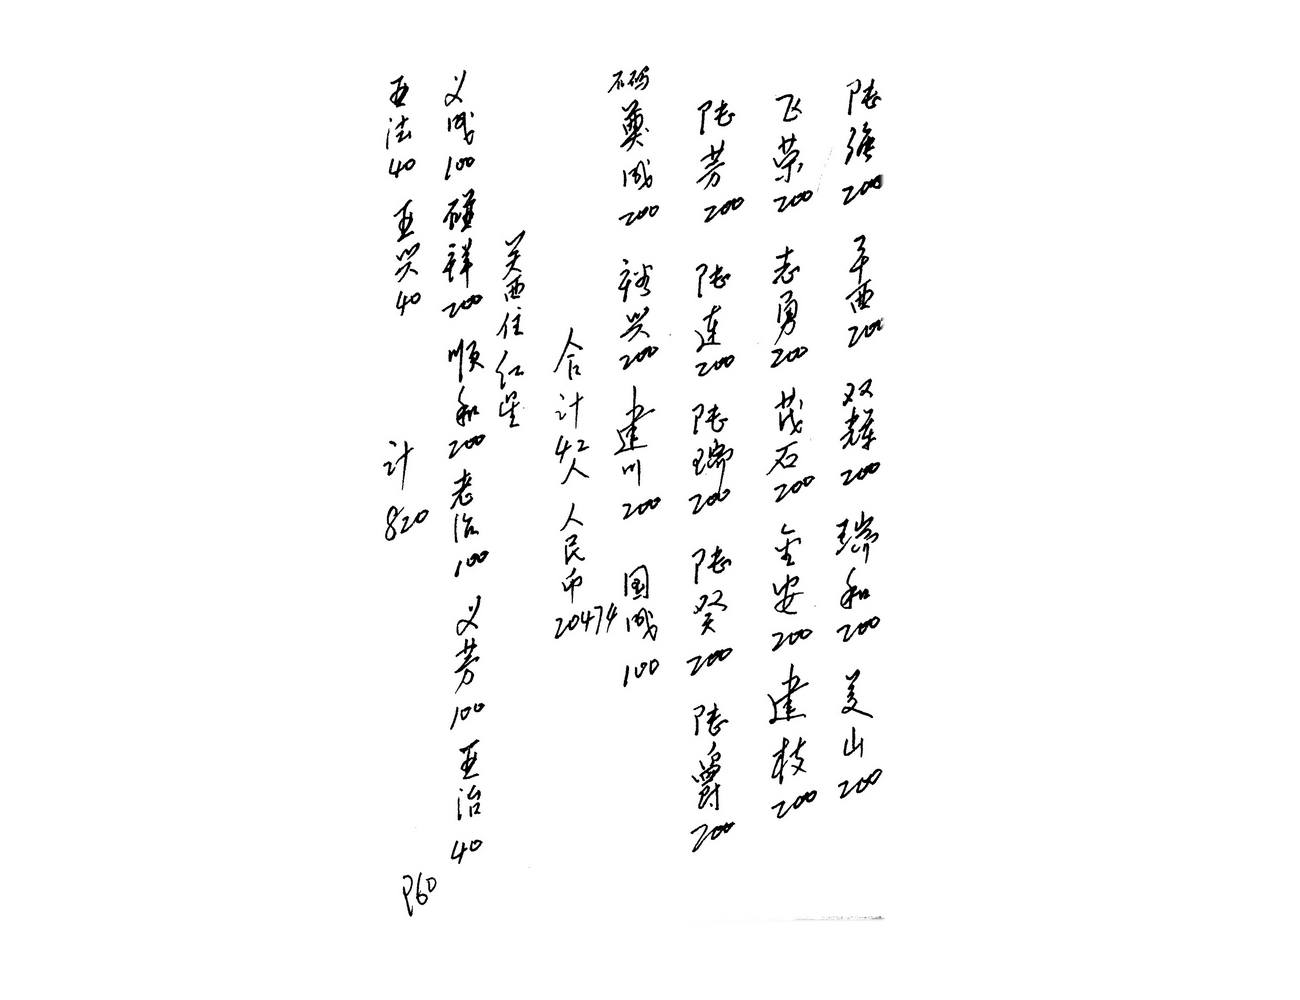 陆强200 平西200 双辉200 瑞和200 美山200
飞荣200 志勇200 茂石200 金安200 建枝200
陆芳200 陆连200 陆瑞200 陆癸200 陆爵200
碼奠成200 裕兴200 建川200 国成100
合计42人 人民币20474
关西住红星
义成100 碰祥200 顺和200 老治100 义芳100 亚治40
亚法40 亚兴40 计820
P60